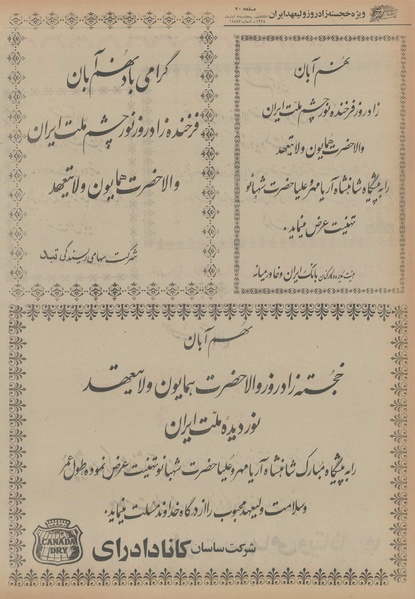 ویژه خجسته زادروز ولیعهد ایران
صفحه ۲۰
نهم آبان
زادروز فرخنده نور چشم ملت ایران
والاحضرت همایون ولایتعهد
را به پیشگاه شاهنشاه آریامهر و علیا حضرت شهبانو
تهنیت عرض مینماید.
بانک ایران و خاورمیانه
گرامی باد نهم آبان
فرخنده زادروز نور چشم ملت ایران
والاحضرت همایون ولایتعهد
شرکت سهامی ریسندگی
نهم آبان
خجسته زادروز والاحضرت همایون ولایتعهد
نور دیده ملت ایران
را به پیشگاه مبارک شاهنشاه آریامهر و علیا حضرت شهبانو تهنیت عرض نموده طول عمر
و سلامت ولیعهد محبوب را از درگاه خداوند مسئلت مینماید.
شرکت ساسان کانادادرای
CANADA
DRY